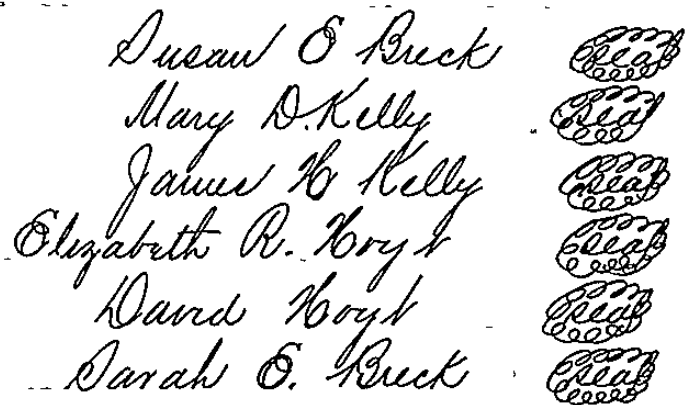 Susan E Breck Seal
Mary D. Kelly Seal
James H Kelly Seal
Elizabeth R. Hoyt Seal
David Hoyt Seal
Sarah E. Breck Seal